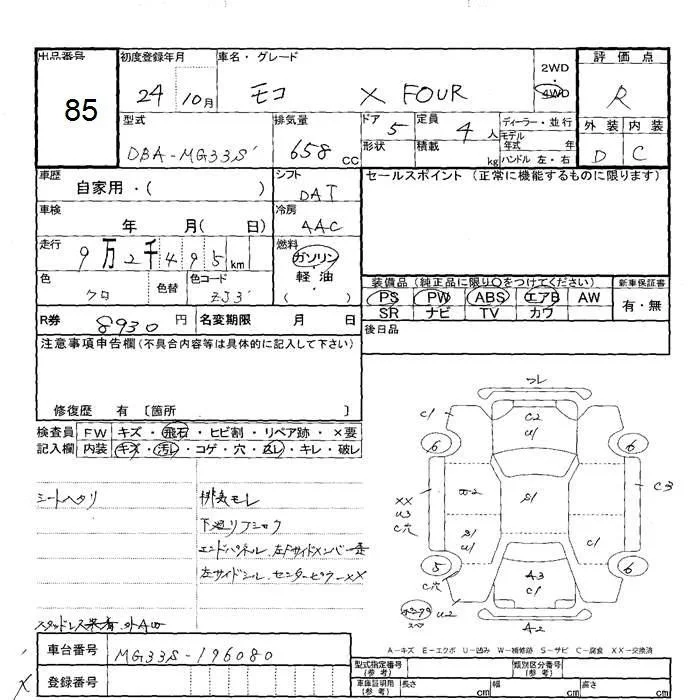 出品番号 初度登録年月 車名・グレード 評価点
85
24 10月 モコ X FOUR 2WD 4WD R
型式 排気量 ドア 定員 ディーラー・並行 外装 内装
DBA-MG33S 658 CC 5 4人 モデル年式 年 D C
形状 積載 kg ハンドル 左・右
車歴 シフト セールスポイント(正常に機能するものに限ります)
自家用・( ) DAT
車検 冷房
年 月( 日) AAC
走行 燃料
9万2千495km ガソリン
色 色替 色コード 軽・油
クロ ZJ3 ( )
装備品(純正品に限り○をつけてください) 新車保証書
PS PW ABS エアB AW 有・無
SR ナビ TV カワ
R券 8930円 名変期限 月 日
後日品
注意事項申告欄(不具合内容等は具体的に記入して下さい)
修復歴 有 〔箇所 〕
検査員 FW キズ・飛石・ヒビ割・リペア跡・×要
記入欄 内装 キズ・汚レ・コゲ・穴・返レ・キレ・破レ
シートヘタリ 排気モレ
エンドパネル
左サイドシル、センターピラーXX
ワレ
C1 C2 U1
6 6
XX U3 C穴 S1 C3
S1 U1 C1
5 6
C穴 A3 C1
U2 A2
A-キズ E-エクボ U-凹み W-補修跡 S-サビ C-腐食 XX-交換済
車台番号 MG33S-196080
登録番号
型式指定番号(参考) 類別区分番号(参考)
車庫証明用(参考) 長さ cm 幅 cm 高さ cm